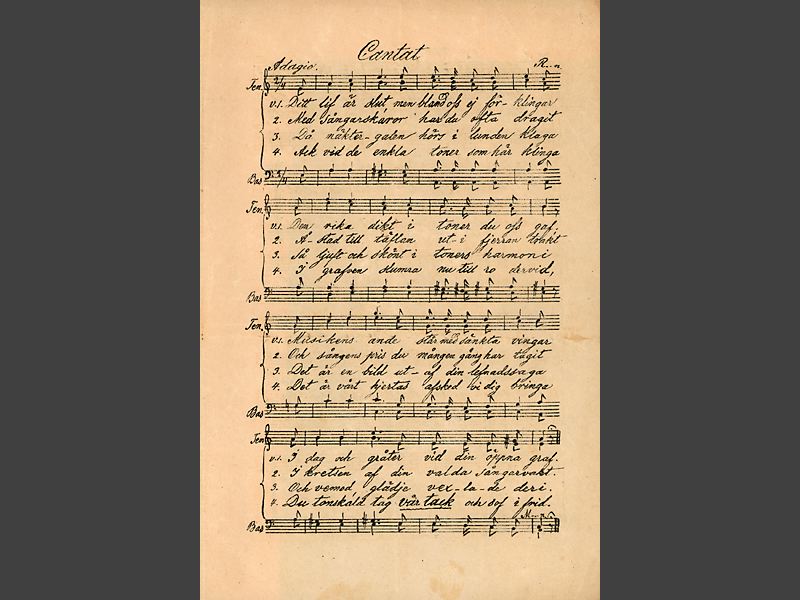 Cantat
Adagio. R..n.
Ten.
v.1. Ditt lif är slut men bland oss ej för-klingar
2. Med sångarskaror har du ofta dragit
3. Då näkter-galen hörs i lunden klaga
4. Ack vid de enkla toner som här klinga
Bas
Ten.
v.1. Den rika dikt i toner du oss gaf.
2. Å-stad till täflan ut-i fjerran trakt
3. Så ljuft och skönt i toners harmoni
4. I grafven slumra nu till ro dervid,
Bas
Ten.
v.1. Musikens ande står med sänkta vingar
2. Och sångens pris du mången gång har tagit
3. Det är en bild ut-af din lefnadssaga
4. Det är vårt hjertas afsked vi dig bringa
Bas
Ten.
v.1. I dag och gråter vid din öppna graf.
2. I kretsen af din valda sångarvakt.
3. Och vemod glädje vex-la-de deri.
4. Du tonskald tag vår tack och sof i frid.
Bas